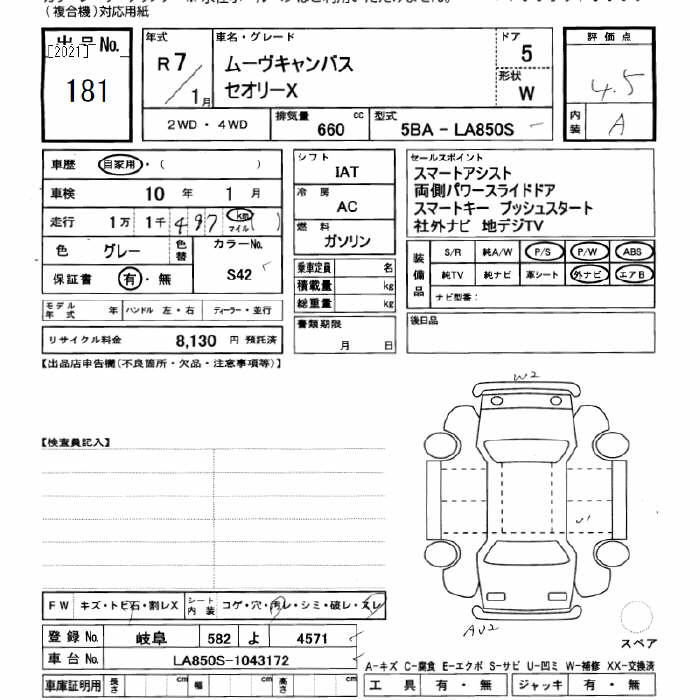 (複合機)対応用紙
出品No.
[2021]
181
年式
R7/1月
車名・グレード
ムーヴキャンバス
セオリーX
ドア
5
形状
W
2WD・4WD
排気量 660 cc
型式 5BA-LA850S
評価点
4.5
内装 A
車歴 自家用・( )
車検 10年 1月
走行 1万 1千 497 km マイル ( )
色 グレー 色替
カラーNo. S42
保証書 有・無
モデル年式 年 ハンドル 左・右 ディーラー・並行
リサイクル料金 8,130円 預託済
シフト
IAT
冷房
AC
燃料
ガソリン
乗車定員 名
積載量 kg
総重量 kg
書類期限
月 日
セールスポイント
スマートアシスト
両側パワースライドドア
スマートキー プッシュスタート
社外ナビ 地デジTV
装備品
S/R 純A/W P/S P/W ABS
純TV 純ナビ 革シート 外ナビ エアB
ナビ型番:
後日品
【出品店申告欄(不良箇所・欠品・注意事項等)】
【検査員記入】
W2
U1
AU2
スペア
FW キズ・トビ石・割レX
シート内装 コゲ・穴・汚レ・シミ・破レ・スレ
登録No. 岐阜 582 よ 4571
車台No. LA850S-1043172
車庫証明用 長さ cm 幅 cm 高さ cm
A-キズ C-腐食 E-エクボ S-サビ U-凹ミ W-補修 XX-交換済
工具 有・無 ジャッキ 有・無